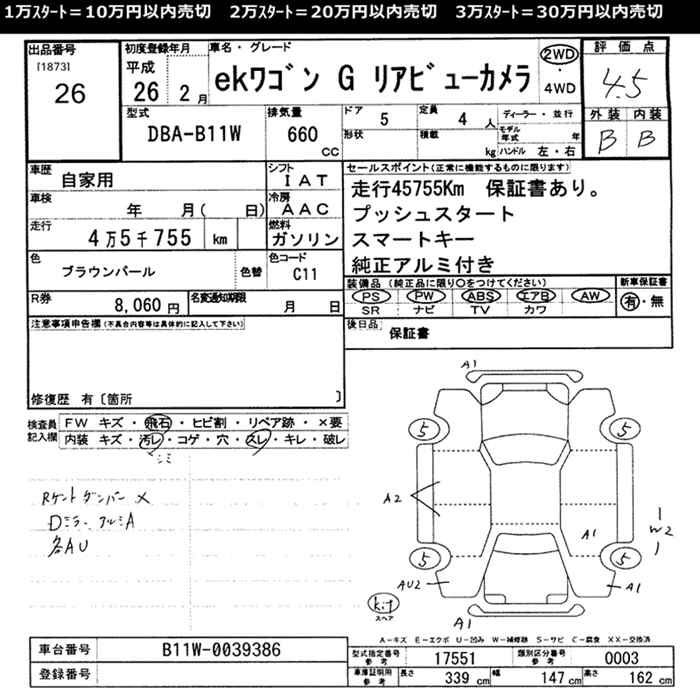 1万スタート＝10万円以内売切　2万スタート＝20万円以内売切　3万スタート＝30万円以内売切
出品番号
[1873]
26
初度登録年月
平成
26 2月
車名・グレード
ekワゴン G リアビューカメラ
2WD
・
4WD
評価点
4.5
型式
DBA-B11W
排気量
660
CC
ドア
5
定員
4 人
形状
積載
kg
ディーラー・並行
モデル年式 年
ハンドル 左・右
外装 内装
B B
車歴
自家用
シフト
IAT
車検
年 月( 日)
冷房
AAC
走行
4万5千755 km
燃料
ガソリン
色
ブラウンパール
色替
色コード
C11
R券
8,060円
名変通知期限
月 日
セールスポイント(正常に機能するものに限ります)
走行45755Km 保証書あり。
プッシュスタート
スマートキー
純正アルミ付き
装備品 (純正品に限り○をつけてください)
PS PW ABS エアB AW
SR ナビ TV カワ
新車保証書
有・無
後日品
保証書
注意事項申告欄(不具合内容等は具体的に記入して下さい)
修復歴 有〔箇所 〕
検査員記入欄
FW キズ・飛石・ヒビ割・リペア跡・×要
内装 キズ・汚レ・コゲ・穴・スレ・キレ・破レ
シミ
Rゲートダンパー ×
Dミラー、アルミA
各AU
A1
5
5
A2
A1
W2
5
5
AU2
A1
kit
スペア
A1
A－キズ E－エクボ U－凹み W－補修跡 S－サビ C－腐食 XX－交換済
車台番号
B11W-0039386
登録番号
型式指定番号
参考
17551
類別区分番号
参考
0003
車庫証明用
参考
長さ
339 cm
幅
147 cm
高さ
162 cm